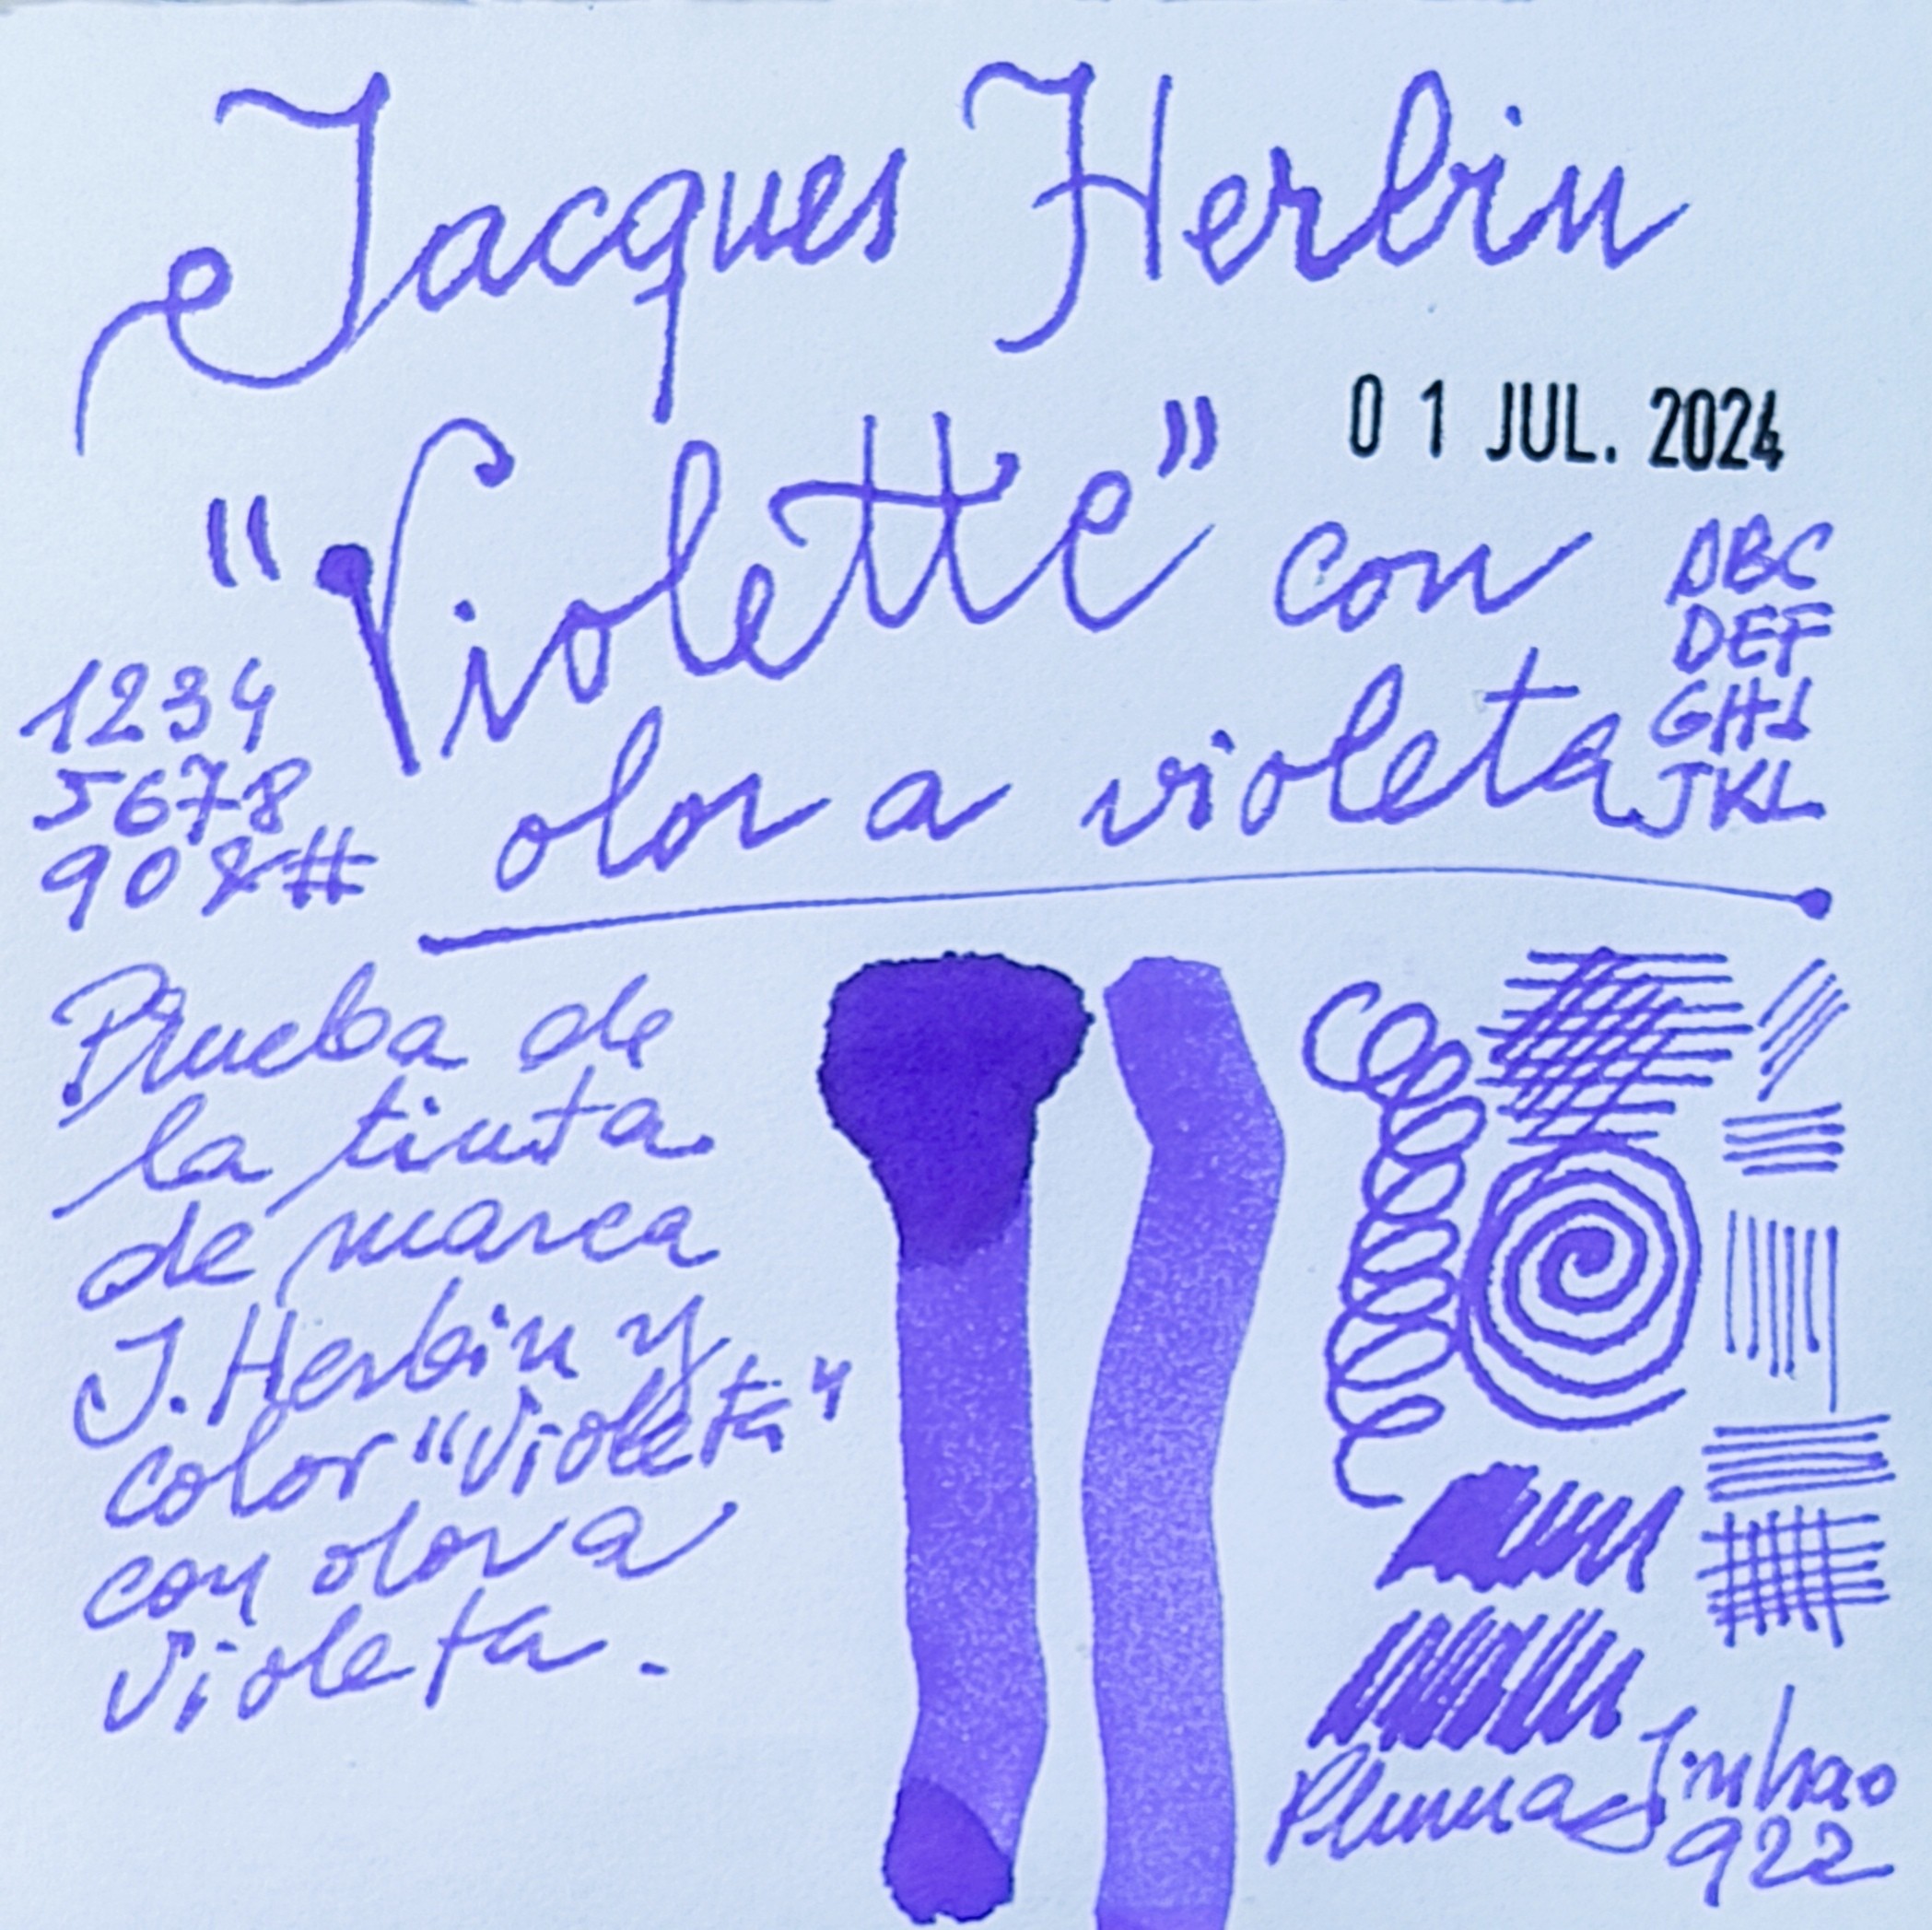 Jacques Herbin
01 JUL. 2024
"Violette" con
olor a violeta
ABC
DEF
GHI
JKL
1234
5678
90&#
Prueba de
la tinta
de marca
J. Herbin y
color "Violeta"
con olor a
violeta.
Pluma Jinhao
922